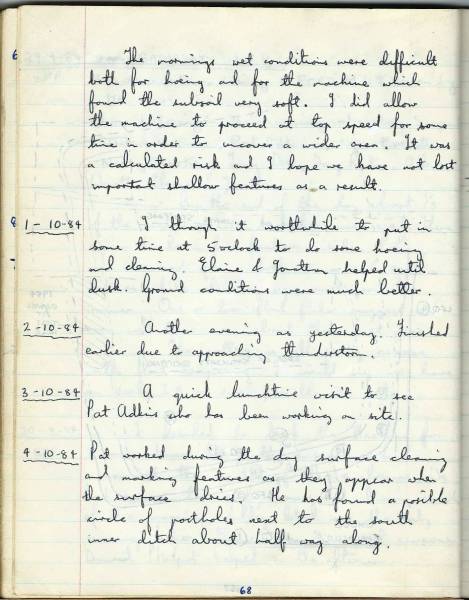 The mornings wet conditions were difficult
both for hoeing and for the machine which
found the subsoil very soft. I did allow
the machine to proceed at top speed for some
time in order to uncover a wider area. It was
a calculated risk and I hope we have not lost
important shallow features as a result.
1-10-84 I though it worthwhile to put in
some time at 5 oclock to do some hoeing
and cleaning. Elaine & helped until
dusk. Ground conditions were much better.
2-10-84 Another evening as yesterday. Finished
earlier due to approaching thunderstorm.
3-10-84 A quick lunchtime visit to see
Pat Adkins who has been working on site.
4-10-84 Pat worked during the day surface cleaning
and marking features as they appear when
the surface dries. He has found a posible
circle of postholes next to the south
inner ditch about half way along.
68